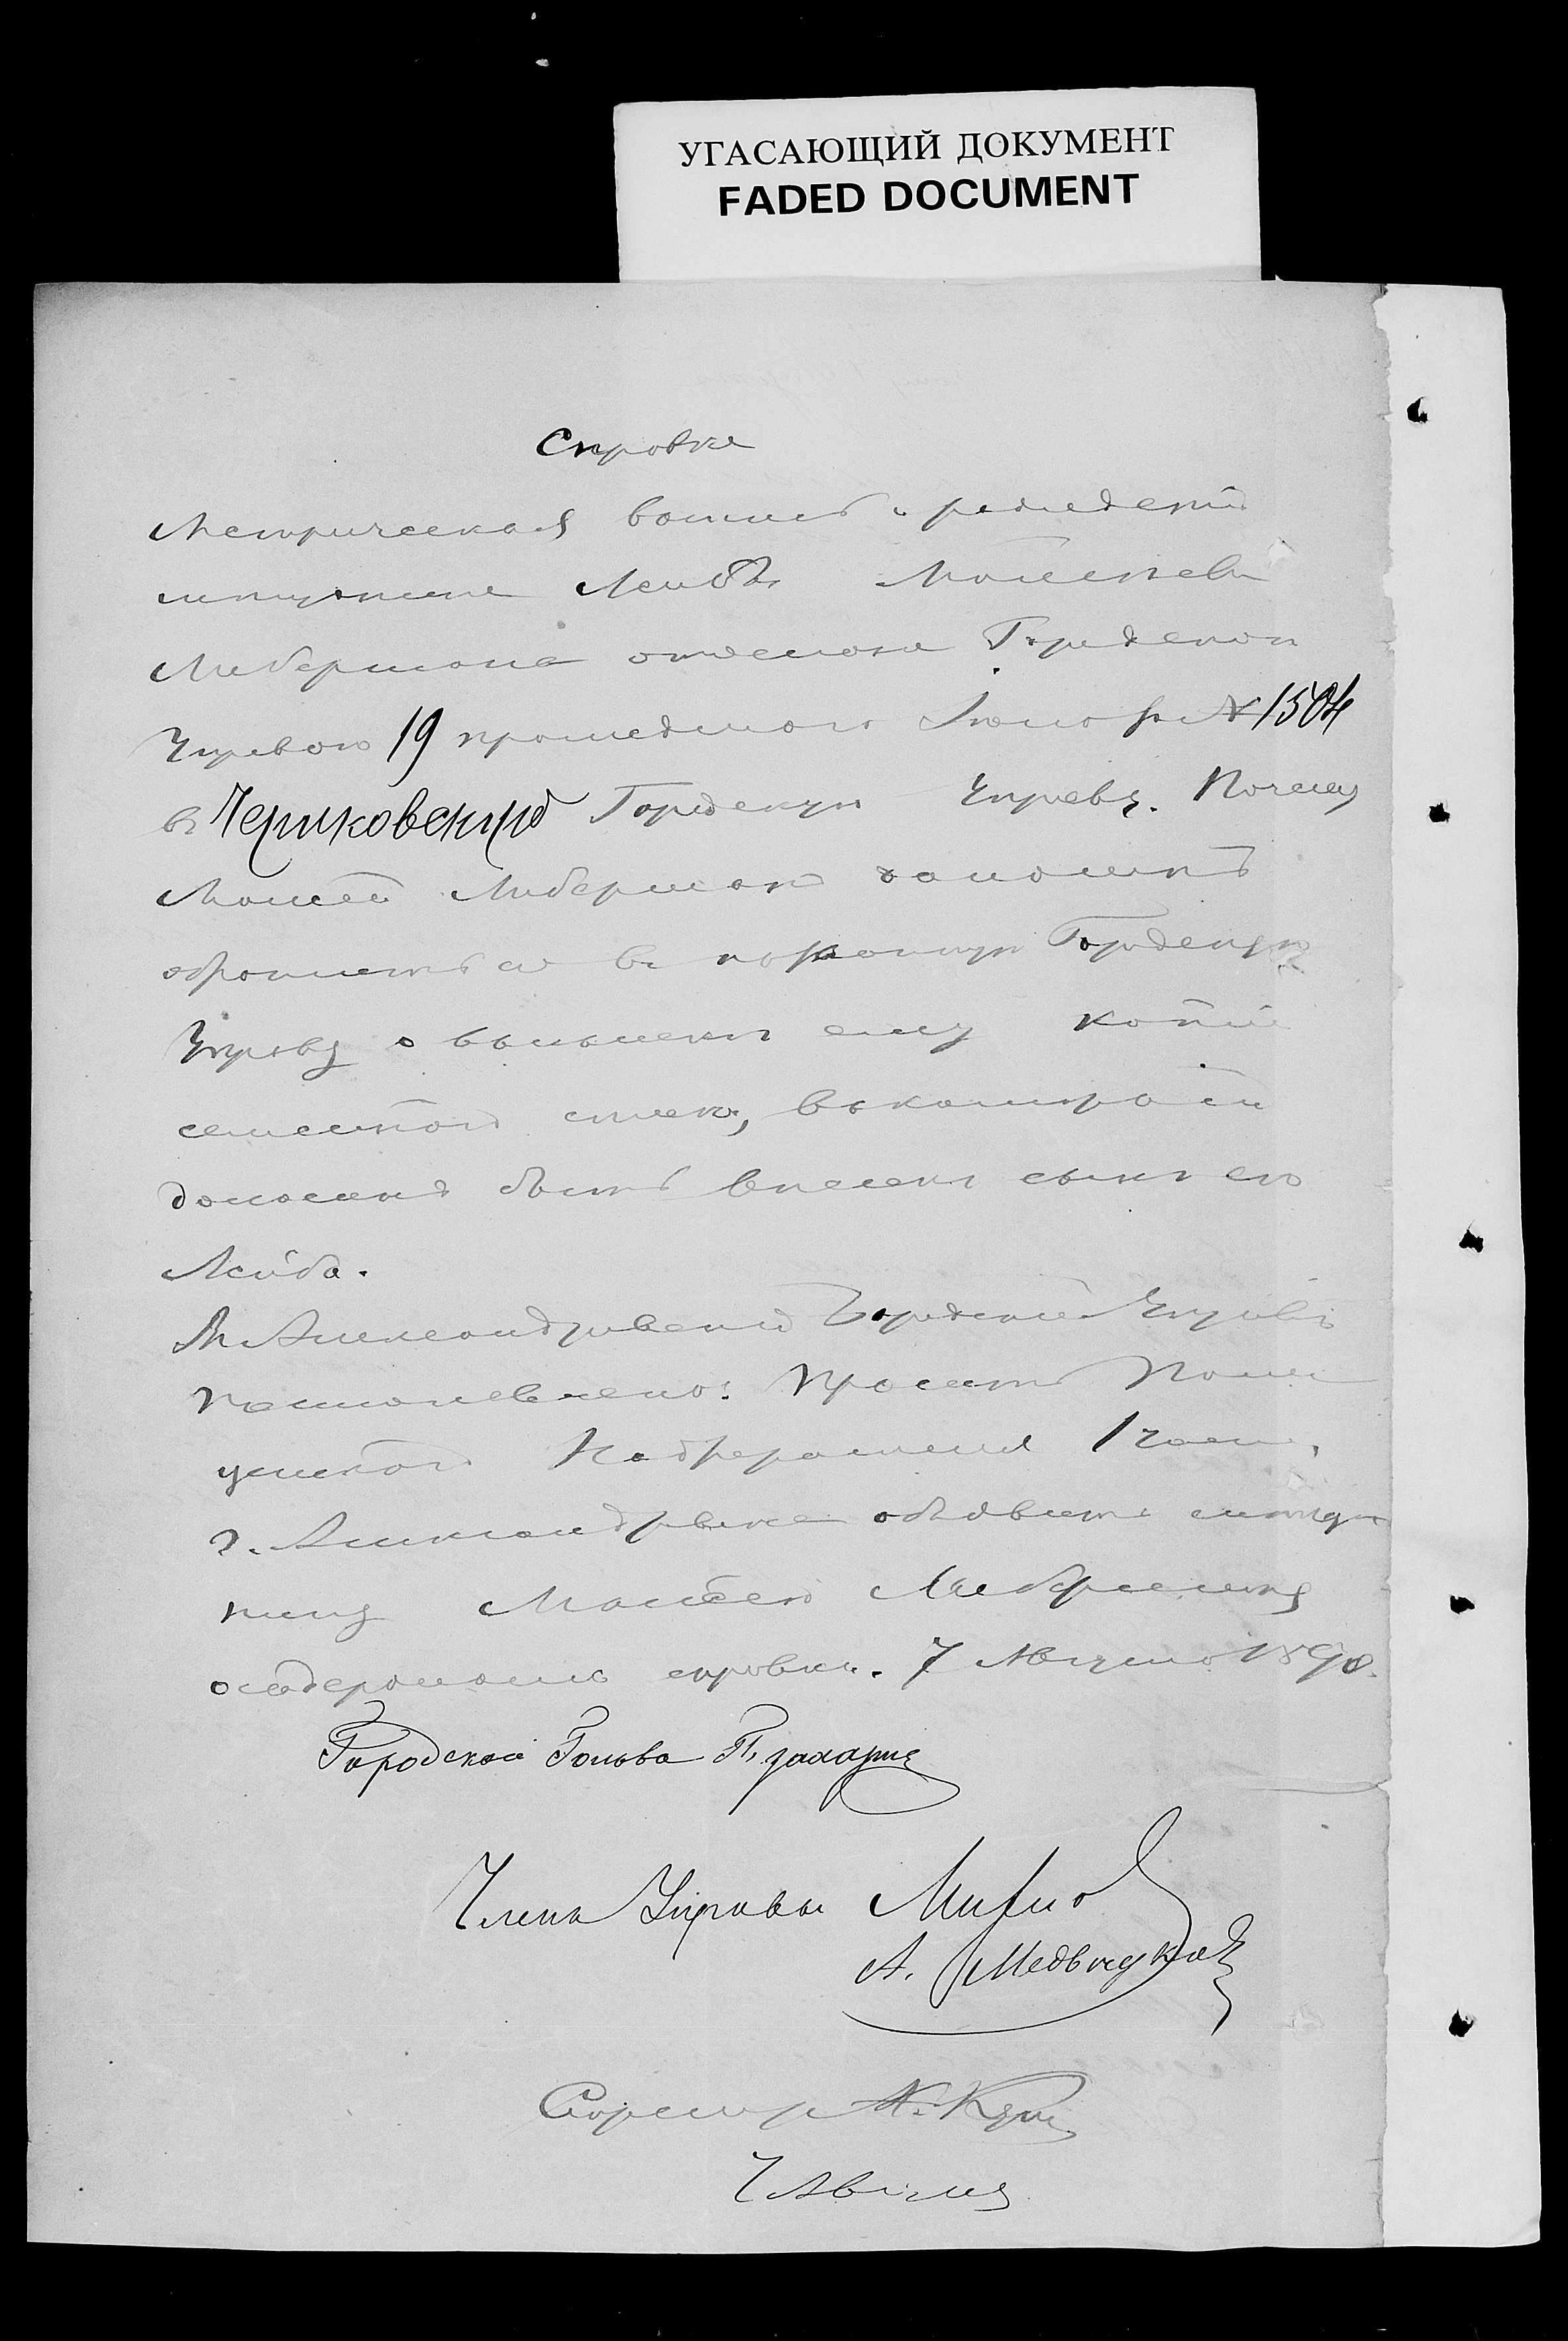 УГАСАЮЩИЙ ДОКУМЕНТ
FADED DOCUMENT
Справка
Метрическая выпись о рожденіи
мещанина Лейбы Мошкова
Либермана отослана Городской
Управою 19 прошедшаго Іюля за № 1504
в Чериковскую Городскую Управу. Почему
Мошей Либерман должен
обратиться в показанную Городскую
Управу о высылке ему копіи
семейного списка, в которой
должен быть внесен сын его
Лейба.
В Александровской Городской Управе
постановлено: Просить Поли
цейского Надзирателя 1 части
г. Александровска объявить мещан
нину Мошею Либерману
содержание справки. 7 Августа 1898.
Городской Голова П. Захарин
Члены Управы
А.
Секретарь
7 Августа